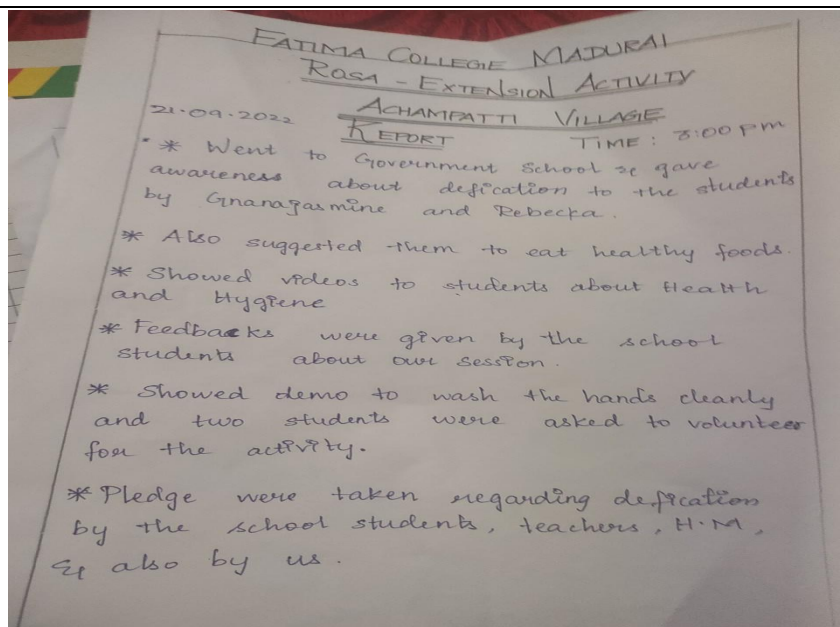 FATIMA COLLEGE MADURAI
ROSA - EXTENSION ACTIVITY
ACHAMPATTI VILLAGE
21.09.2022 REPORT TIME : 3:00 pm
* Went to Government School & gave
awareness about defication to the students
by Gnanajasmine and Rebecka.
* Also suggested them to eat healthy foods.
* Showed videos to students about Health
and Hygiene
* Feedbacks were given by the school
students about our session.
* Showed demo to wash the hands cleanly
and two students were asked to volunteer
for the activity.
* Pledge were taken regarding defication
by the school students, teachers, H.M,
& also by us.